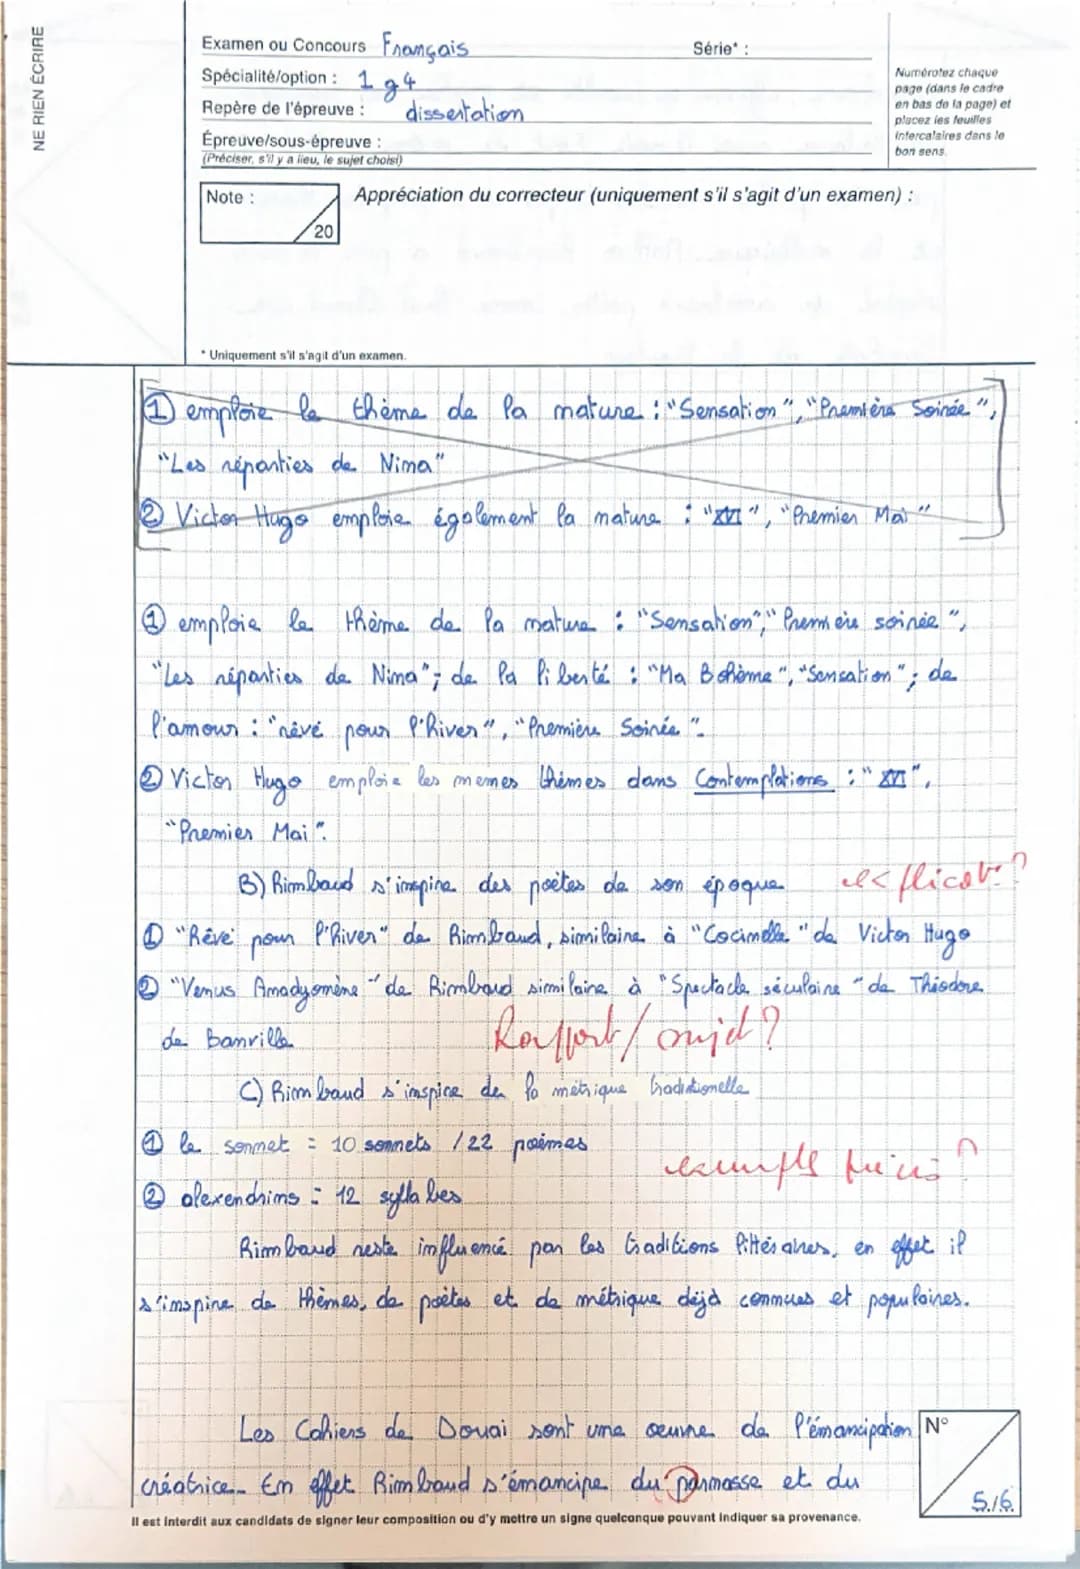 NE RIEN ÉCRIRE
Examen ou Concours Français Série* :
Spécialité/option : 1 g4
Repère de l'épreuve : dissertation
Épreuve/sous-épreuve :
(Préciser, s'il y a lieu, le sujet choisi)
Numérotez chaque
page (dans le cadre
en bas de la page) et
placez les feuilles
intercalaires dans le
bon sens.
Note :
20
Appréciation du correcteur (uniquement s'il s'agit d'un examen) :
* Uniquement s'il s'agit d'un examen.
① emploie le thème de la nature : "Sensation", "Première Soirée",
"Les réparties de Nina"
② Victor Hugo emploie également la nature : "XVI", "Premier Mai"
① emploie le thème de la nature : "Sensation", "Première soirée",
"Les réparties de Nina" ; de la liberté : "Ma Bohème", "Sensation" ; de
l'amour : "rêvé pour l'hiver", "Première Soirée".
② Victor Hugo emploie les memes thèmes dans Contemplations : "XVI",
"Premier Mai".
B) Rimbaud s'inspire des poètes de son époque
① "Rêvé pour l'hiver" de Rimbaud, similaire à "Cocinelle" de Victor Hugo
② "Venus Anadyomène" de Rimbaud similaire à "Spectacle séculaire" de Théodore
de Banville
Rapport / sujet ?
C) Rimbaud s'inspire de la métrique traditionelle
① le sonnet = 10 sonnets / 22 poèmes
exemple précis ?
② alexendrins = 12 syllabes
Rimbaud reste influencé par les traditions littéraires, en effet il
s'inspire de thèmes, de poètes et de métrique déjà connues et populaires.
Les Cahiers de Douai sont une œuvre de l'émancipation
créatrice. En effet Rimbaud s'émancipe du parnasse et du
N°
5./6.
Il est interdit aux candidats de signer leur composition ou d'y mettre un signe quelconque pouvant indiquer sa provenance.